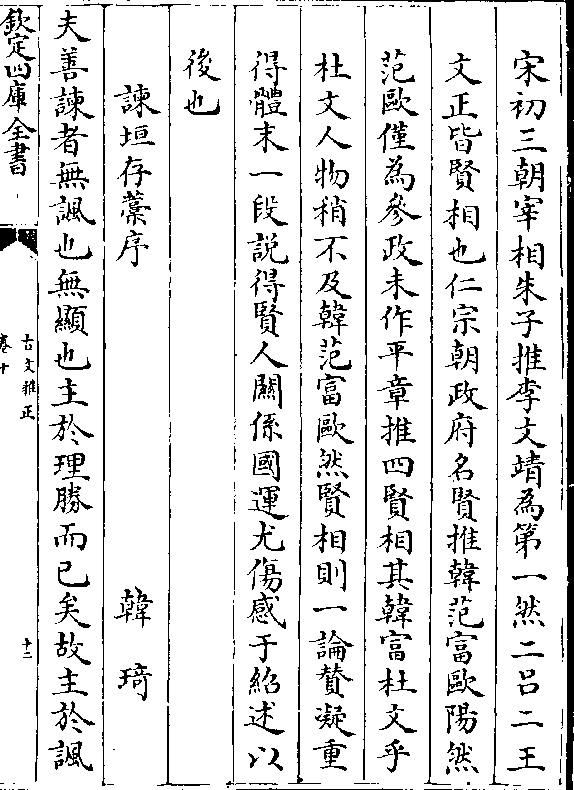 宋初三朝宰相朱子推李文靖為第一然二呂二王
文正皆賢相也仁宗朝政府名賢推韓范富歐陽然
范歐僅為參政未作平章推四賢相其韓富杜文乎
杜文人物稍不及韓范富歐然賢相則一論贊凝重
得體末一段説得賢人關係國運尤傷感于紹述以
後也
諫垣存藁序　韓琦
夫善諫者無諷也無顯也主於理勝而已矣故主於諷
欽定四庫全書
古文雅正
卷十
十二